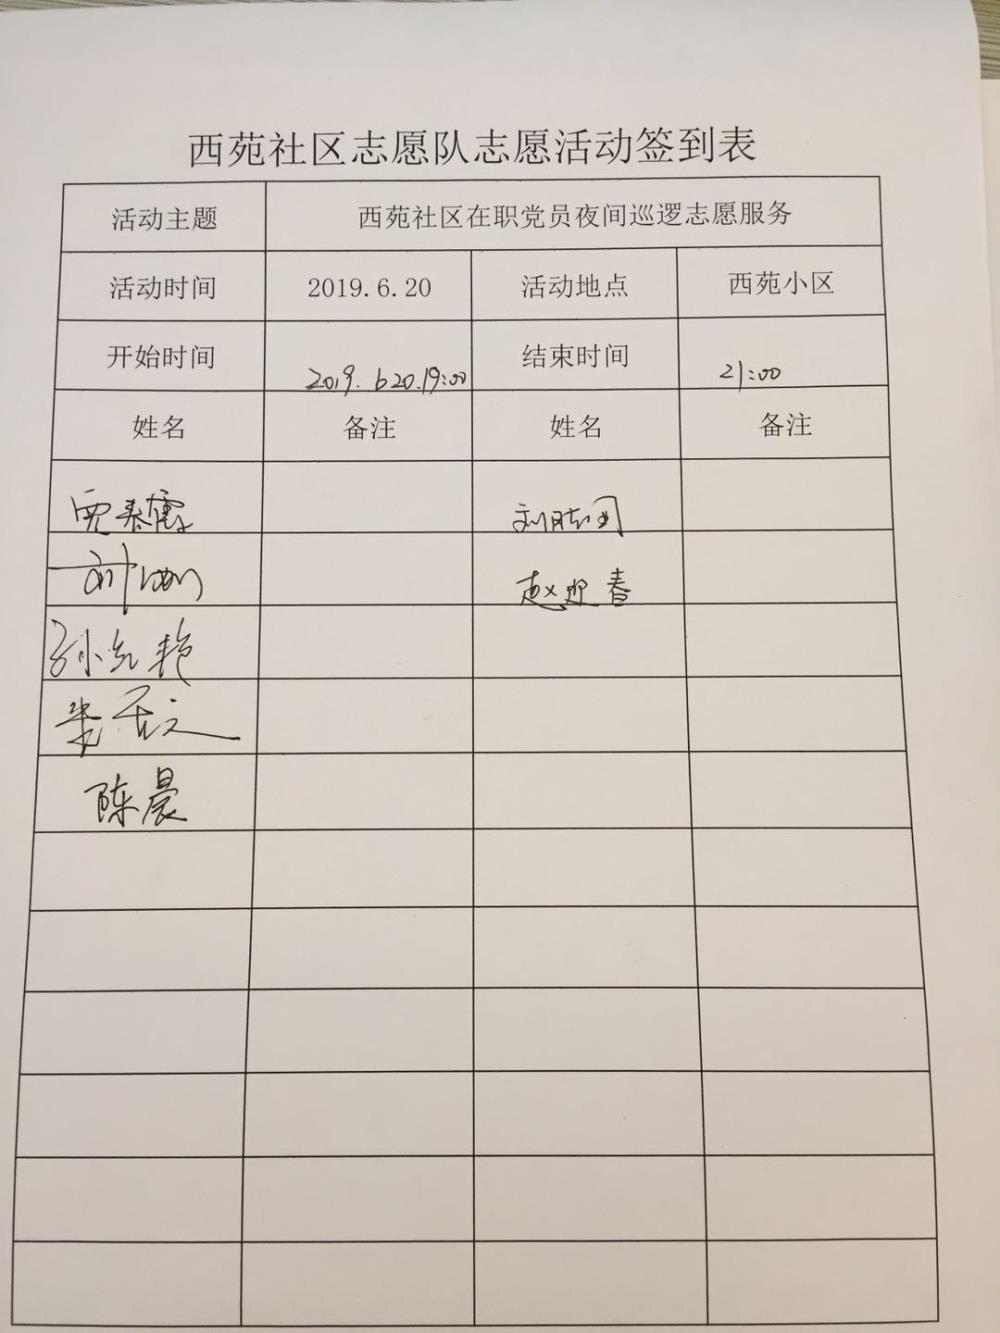 西苑社区志愿队志愿活动签到表
活动主题 西苑社区在职党员夜间巡逻志愿服务
活动时间 2019.6.20 活动地点 西苑小区
开始时间 2019.6.20.19:00 结束时间 21:00
姓名 备注 姓名 备注
贾春霞 刘
刘 赵迎春
孙 艳
文
陈晨